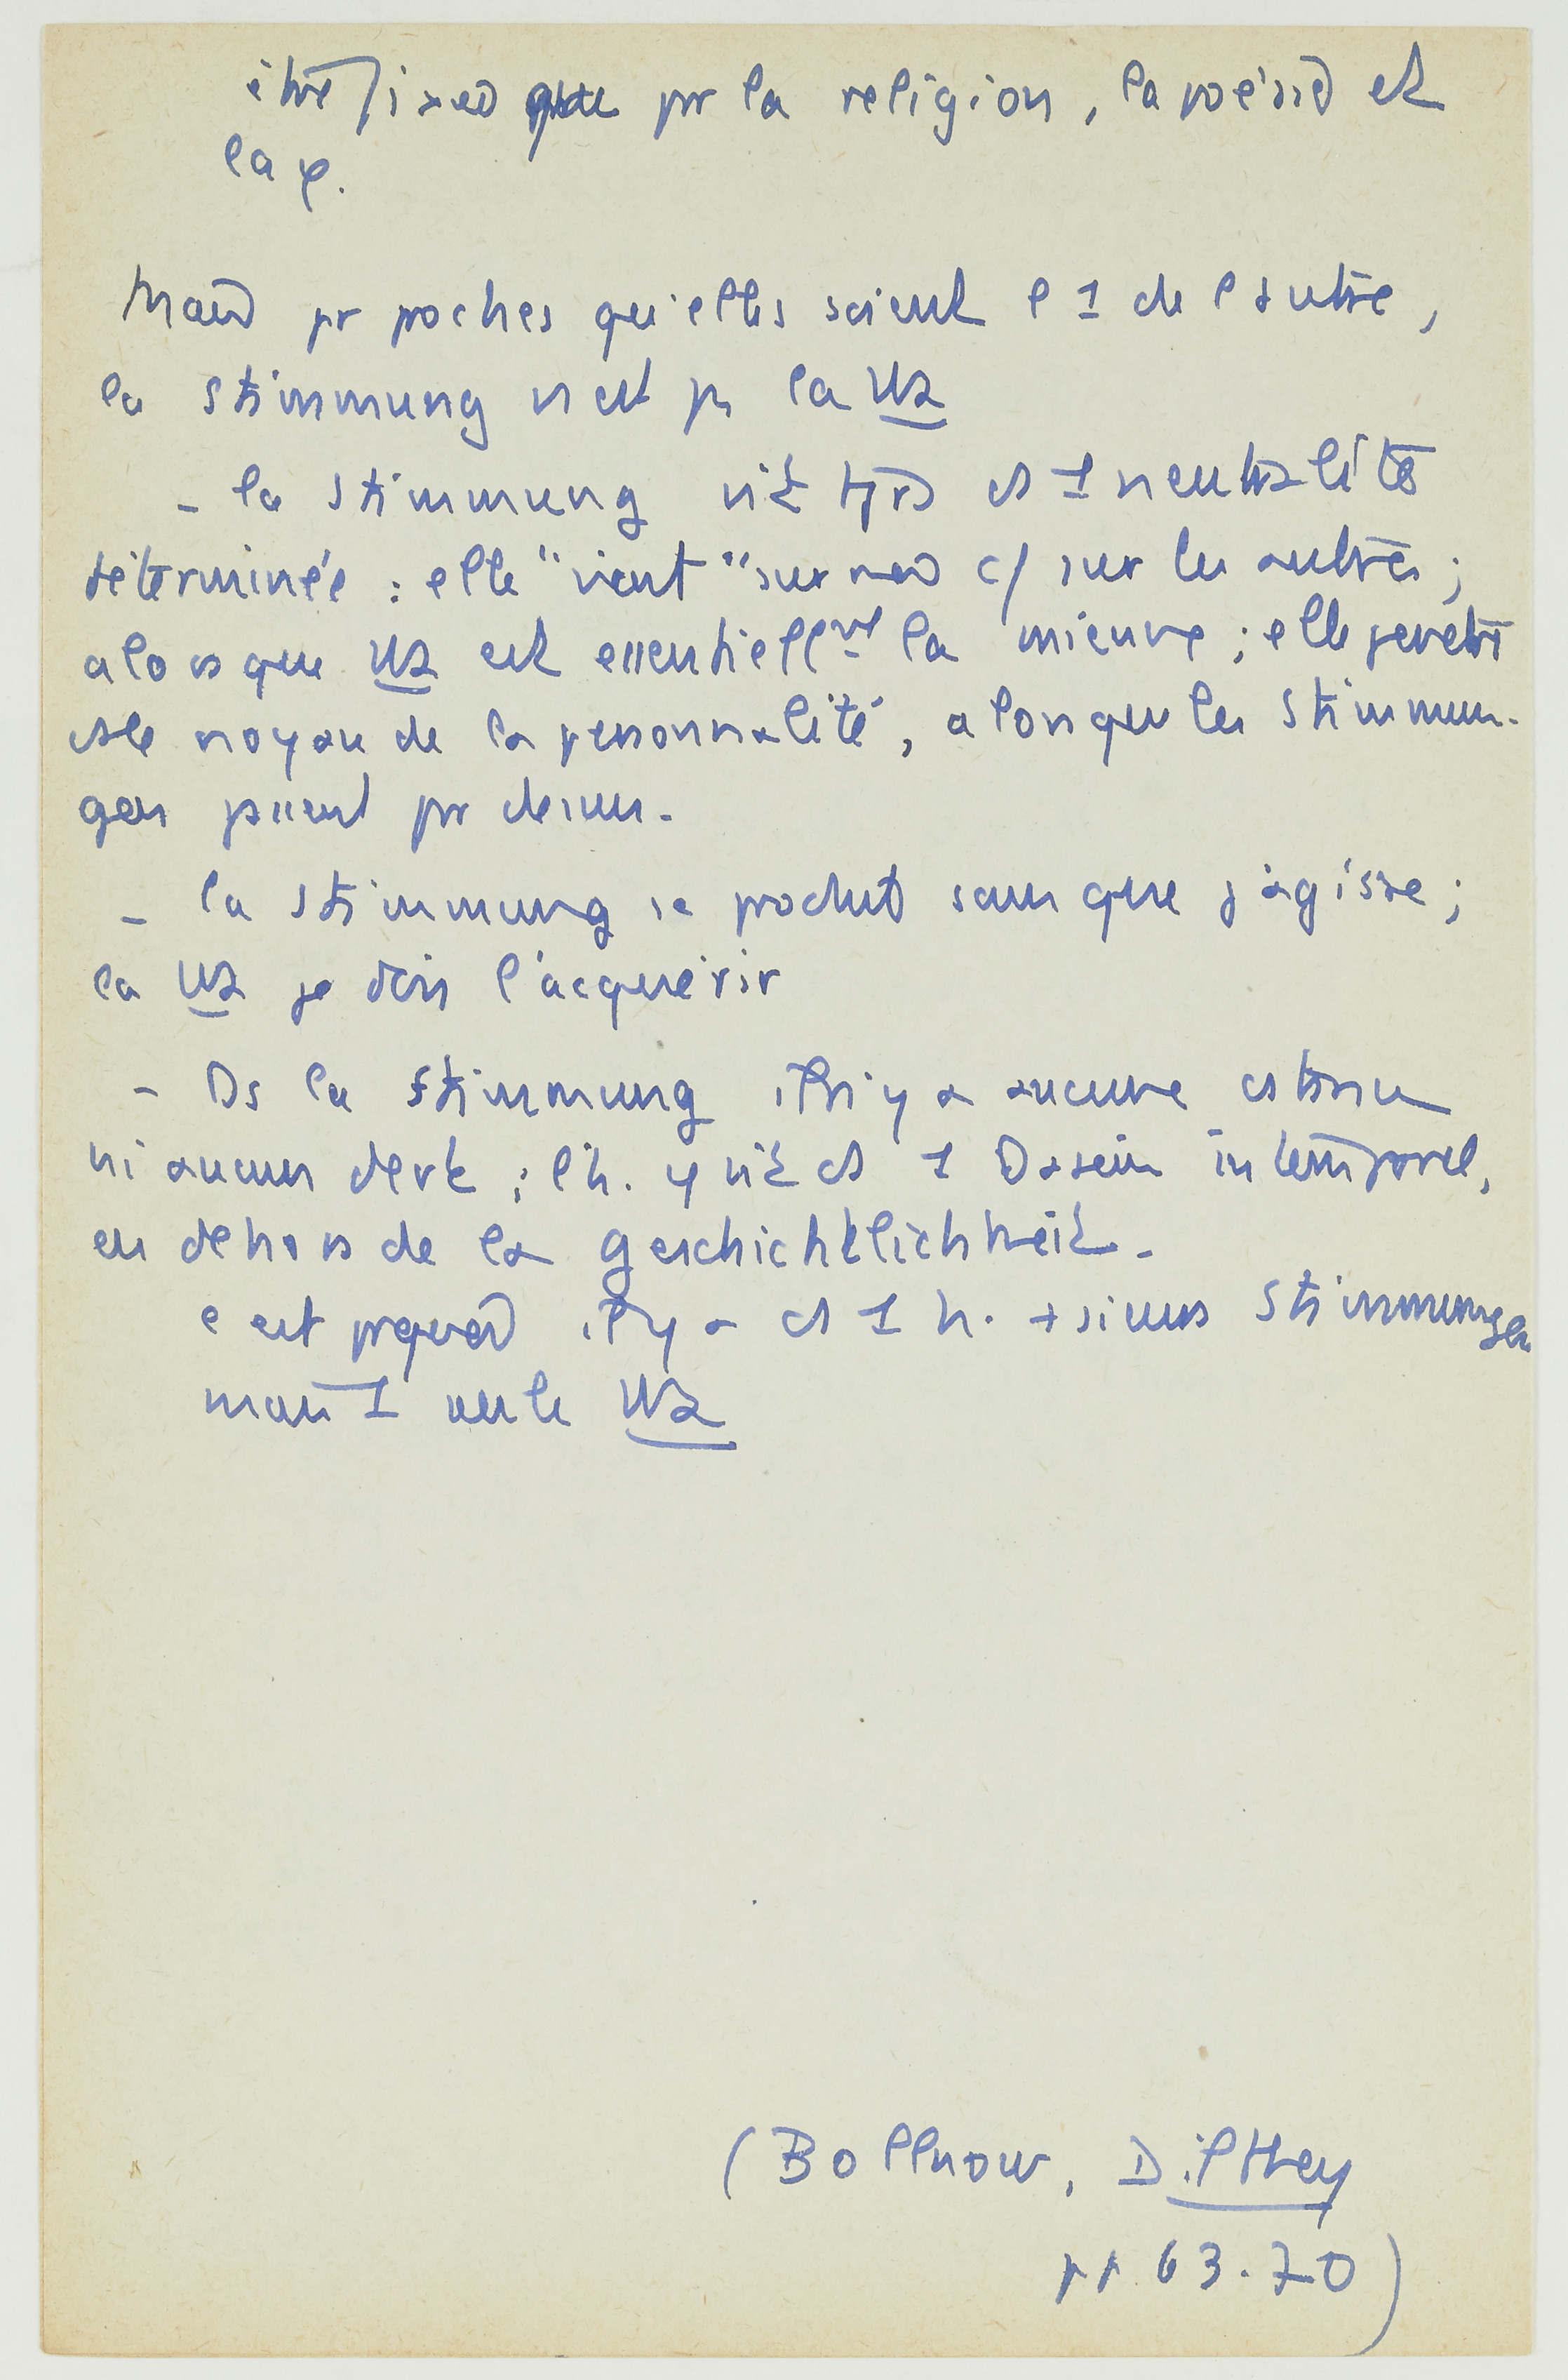 être fixée que par la religion, la poésie et
la φ.
Mais pr proches qu'elles soient l'1 de l'autre,
la Stimmung n'est ps la WA
- la Stimmung vit tjrs ds 1 neutralité
déterminée : elle "vient" sur moi c/ sur les autres ;
alors que WA est essentiellmt la mienne ; elle pénètre
ds le noyau de la personnalité, alors que les Stimmun-
gen passent par dessus.
- la Stimmung se produit sans que j'agisse ;
la WA je dois l'acquérir
- Ds la Stimmung il n'y a aucune
ni aucun devt ; l'h. y vit ds 1 Dasein intemporel,
en dehors de la Geschichtlichkeit.
c'est pquoi il y a ds 1 h. +sieurs Stimmungen
mais 1 seule WA
(Bollnow, Dilthey
pp 63.70)